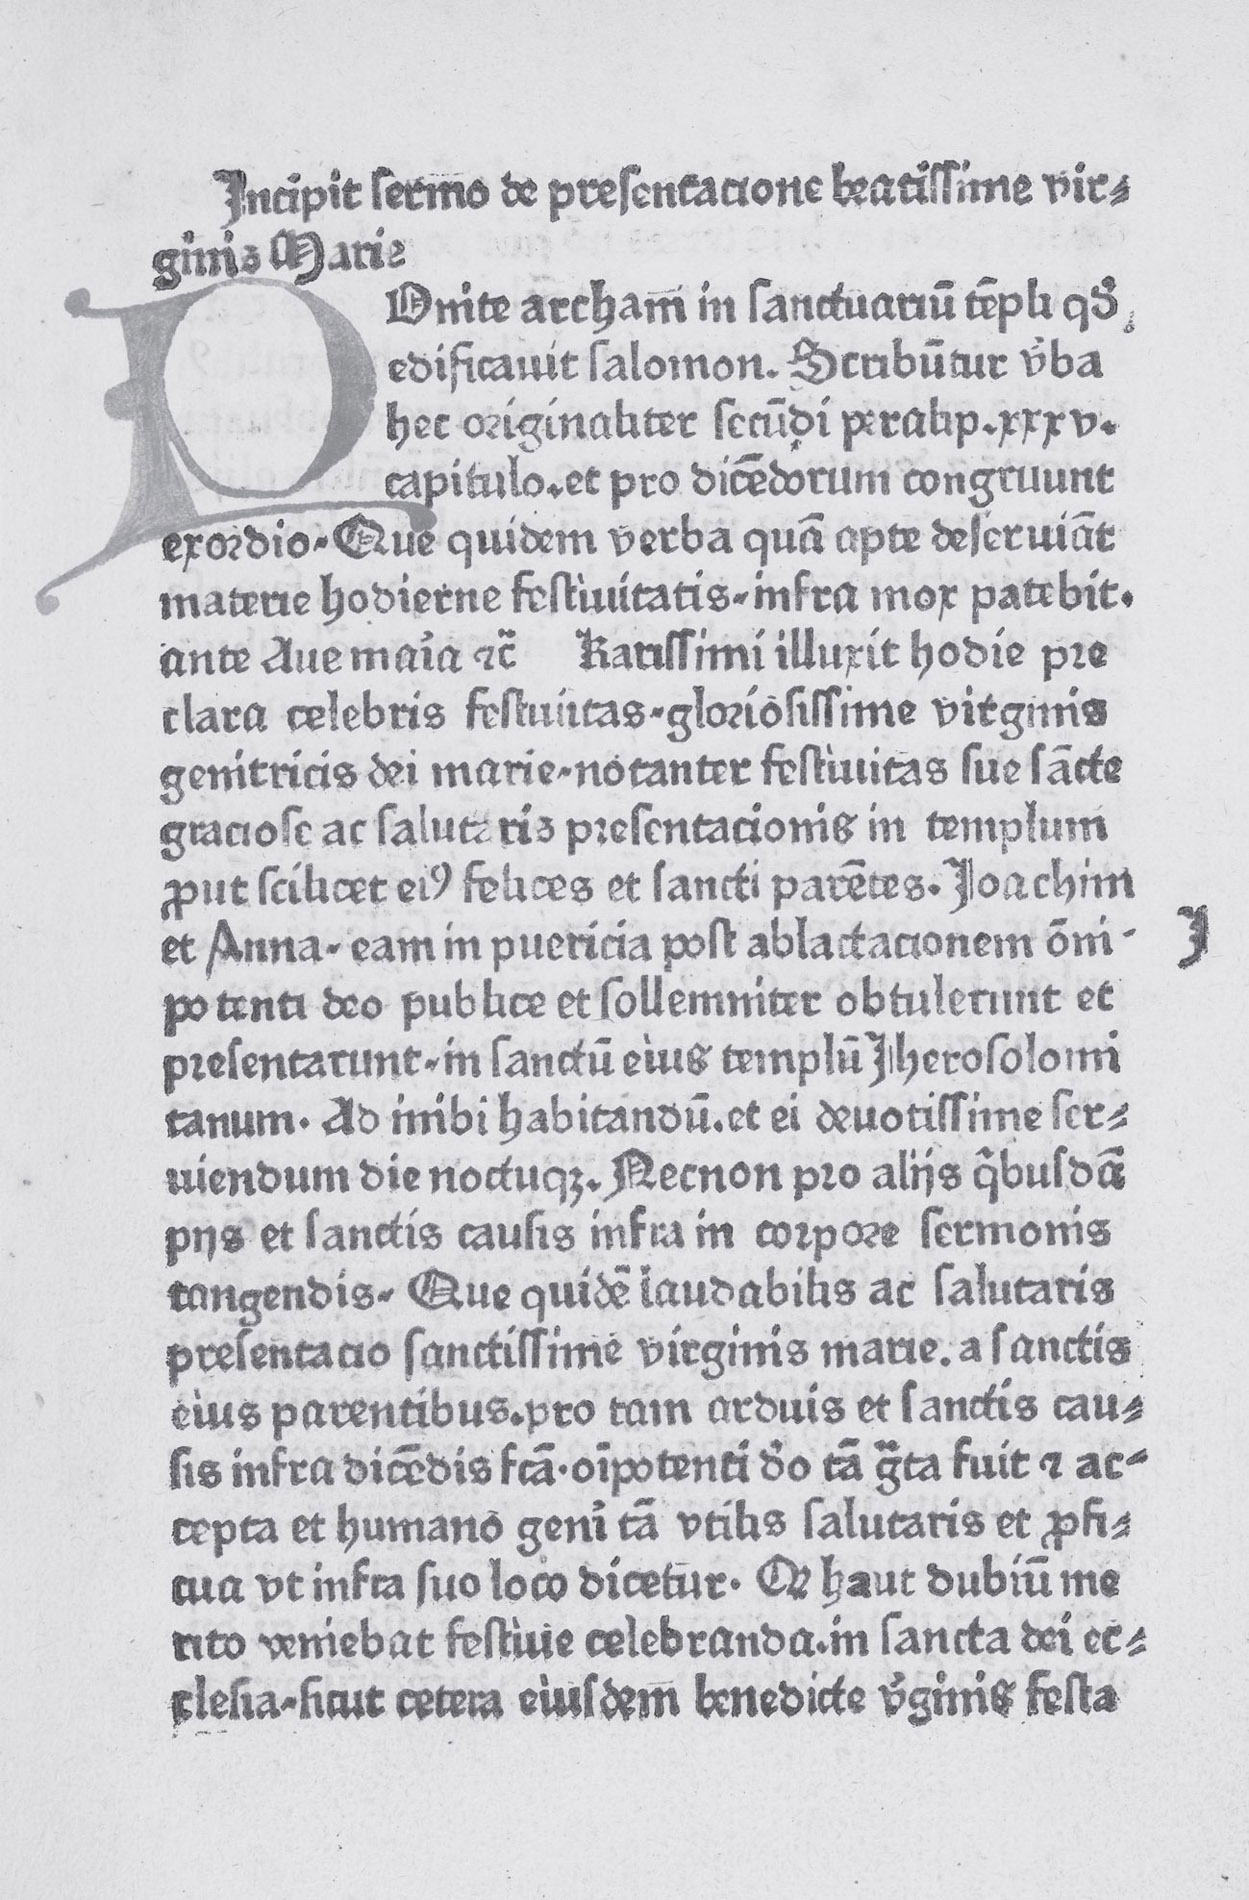 Incipit sermo de presentacione beatissime vir⸗
ginis Marie
POnite archam in sanctuariū tēpli qḋ
edificauit salomon. Scribūtur v̓ba
hec originaliter secūdi peralip.xxxv.
capitulo.et pro dicēdorum congruunt
exordio. Que quidem verba quā apte deseruiāt
materie hodierne festiuitatis.infra mox patebit.
ante Aue maīa ⁊c̄ Karissimi illuxit hodie pre
clara celebris festiuitas.gloriosissime virginis
genitricis dei marie.notanter festiuitas sue sācte
graciose ac salutaris presentacionis in templum
ꝓut scilicet eiꝰ felices et sancti parētes. Joachim
et Anna. eam in puericia post ablactacionem ōni-
potenti deo publice et sollemniter obtulerunt et
presentarunt.in sanctū eius templū Jherosolomi
tanum. Ad inibi habitandū.et ei deuotissime ser⸗
uiendum die noctuqꝫ. Necnon pro alijs q̄busdā
pijs et sanctis causis infra in corpore sermonis
tangendis. Que quidē laudabilis ac salutaris
presentacio sanctissime virginis marie. a sanctis
eius parentibus.pro tam arduis et sanctis cau⸗
sis infra dicēdis fcā.oīpotenti d̓o tā g̃ta fuit ⁊ ac⸗
cepta et humano geni̓ tā vtilis salutaris et ꝓfi⸗
cua vt infra suo loco dicetur. Qꝛ haut dubiū me
rito veniebat festiuie celebranda.in sancta dei ec⸗
clesia.sicut cetera eiusdem benedicte v̓ginis festa
J